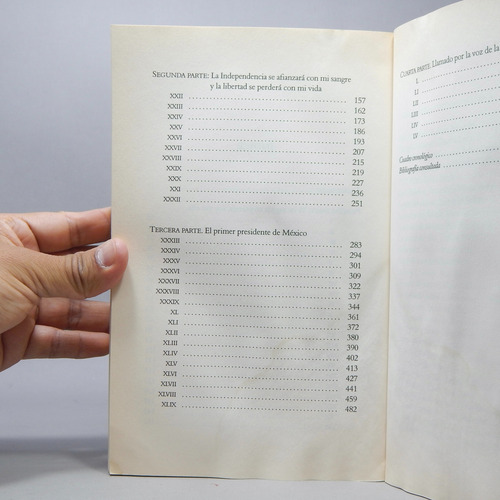 SEGUNDA PARTE: La Independencia se afianzará con mi sangre
y la libertad se perderá con mi vida
XXII ........ 157
XXIII ........ 162
XXIV ........ 173
XXV ........ 186
XXVI ........ 193
XXVII ........ 207
XXVIII ........ 215
XXIX ........ 219
XXX ........ 227
XXI ........ 236
XXXII ........ 251
TERCERA PARTE. El primer presidente de México
XXXIII ........ 283
XXXIV ........ 294
XXXV ........ 301
XXXVI ........ 309
XXXVII ........ 322
XXXVIII ........ 337
XXXIX ........ 344
XL ........ 361
XLI ........ 372
XLII ........ 380
XLIII ........ 390
XLIV ........ 402
XLV ........ 413
XLVI ........ 427
XLVII ........ 441
XLVIII ........ 459
XLIX ........ 482
CUARTA PARTE. Llamado por la voz de la
L ........
LI ........
LII ........
LIII ........
LIV ........
LV ........
Cuadro cronológico ........
Bibliografía consultada ........